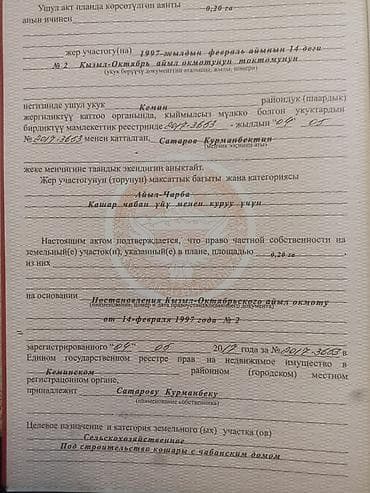 Ушул акт планда көрсөтүлгөн аянты 0,20 га
анын ичинен
жер участогу(на) 1997-жылдын февраль айынын 14 деги
№ 2 Кызыл-Октябрь айыл окмотунун токтомунун
(укук берүүчү документтин аталышы, жылы, номери)
негизинде ушул укук Кемин райондук (шаардык)
жергиликтүү каттоо органында, кыймылсыз мүлккө болгон укуктардын
бирдиктүү мамлекеттик реестринде 2017-3663 -жылдын "04" 05
№ 2017-3663 менен катталган, Сатаров Курманбектин
(менчик ээсинин аты)
жеке менчигине таандык экендигин аныктайт.
Жер участогунун (торунун) максаттык багыты жана категориясы
Айыл-Чарба
Кашар чабан үйү менен куруу үчүн
Настоящим актом подтверждается, что право частной собственности на
земельный(е) участок(и), указанный(е) в плане, площадью 0,20 га ,
из них
на основании Постановления Кызыл-Октябрьского айыл окмоту
(наименование, номер и дата правоустанавливающего документа)
от 14-февраля 1997 года № 2
зарегистрированного "04" 05 2017 года за № 2017-3663 в
Едином государственном реестре прав на недвижимое имущество в
Кеминском районном (городском) местном
регистрационном органе,
принадлежит Сатарову Курманбеку
(наименование собственника)
Целевое назначение и категория земельного (ых) участка (ов)
Сельскохозяйственное
Под строительство кошары с чабанским домом